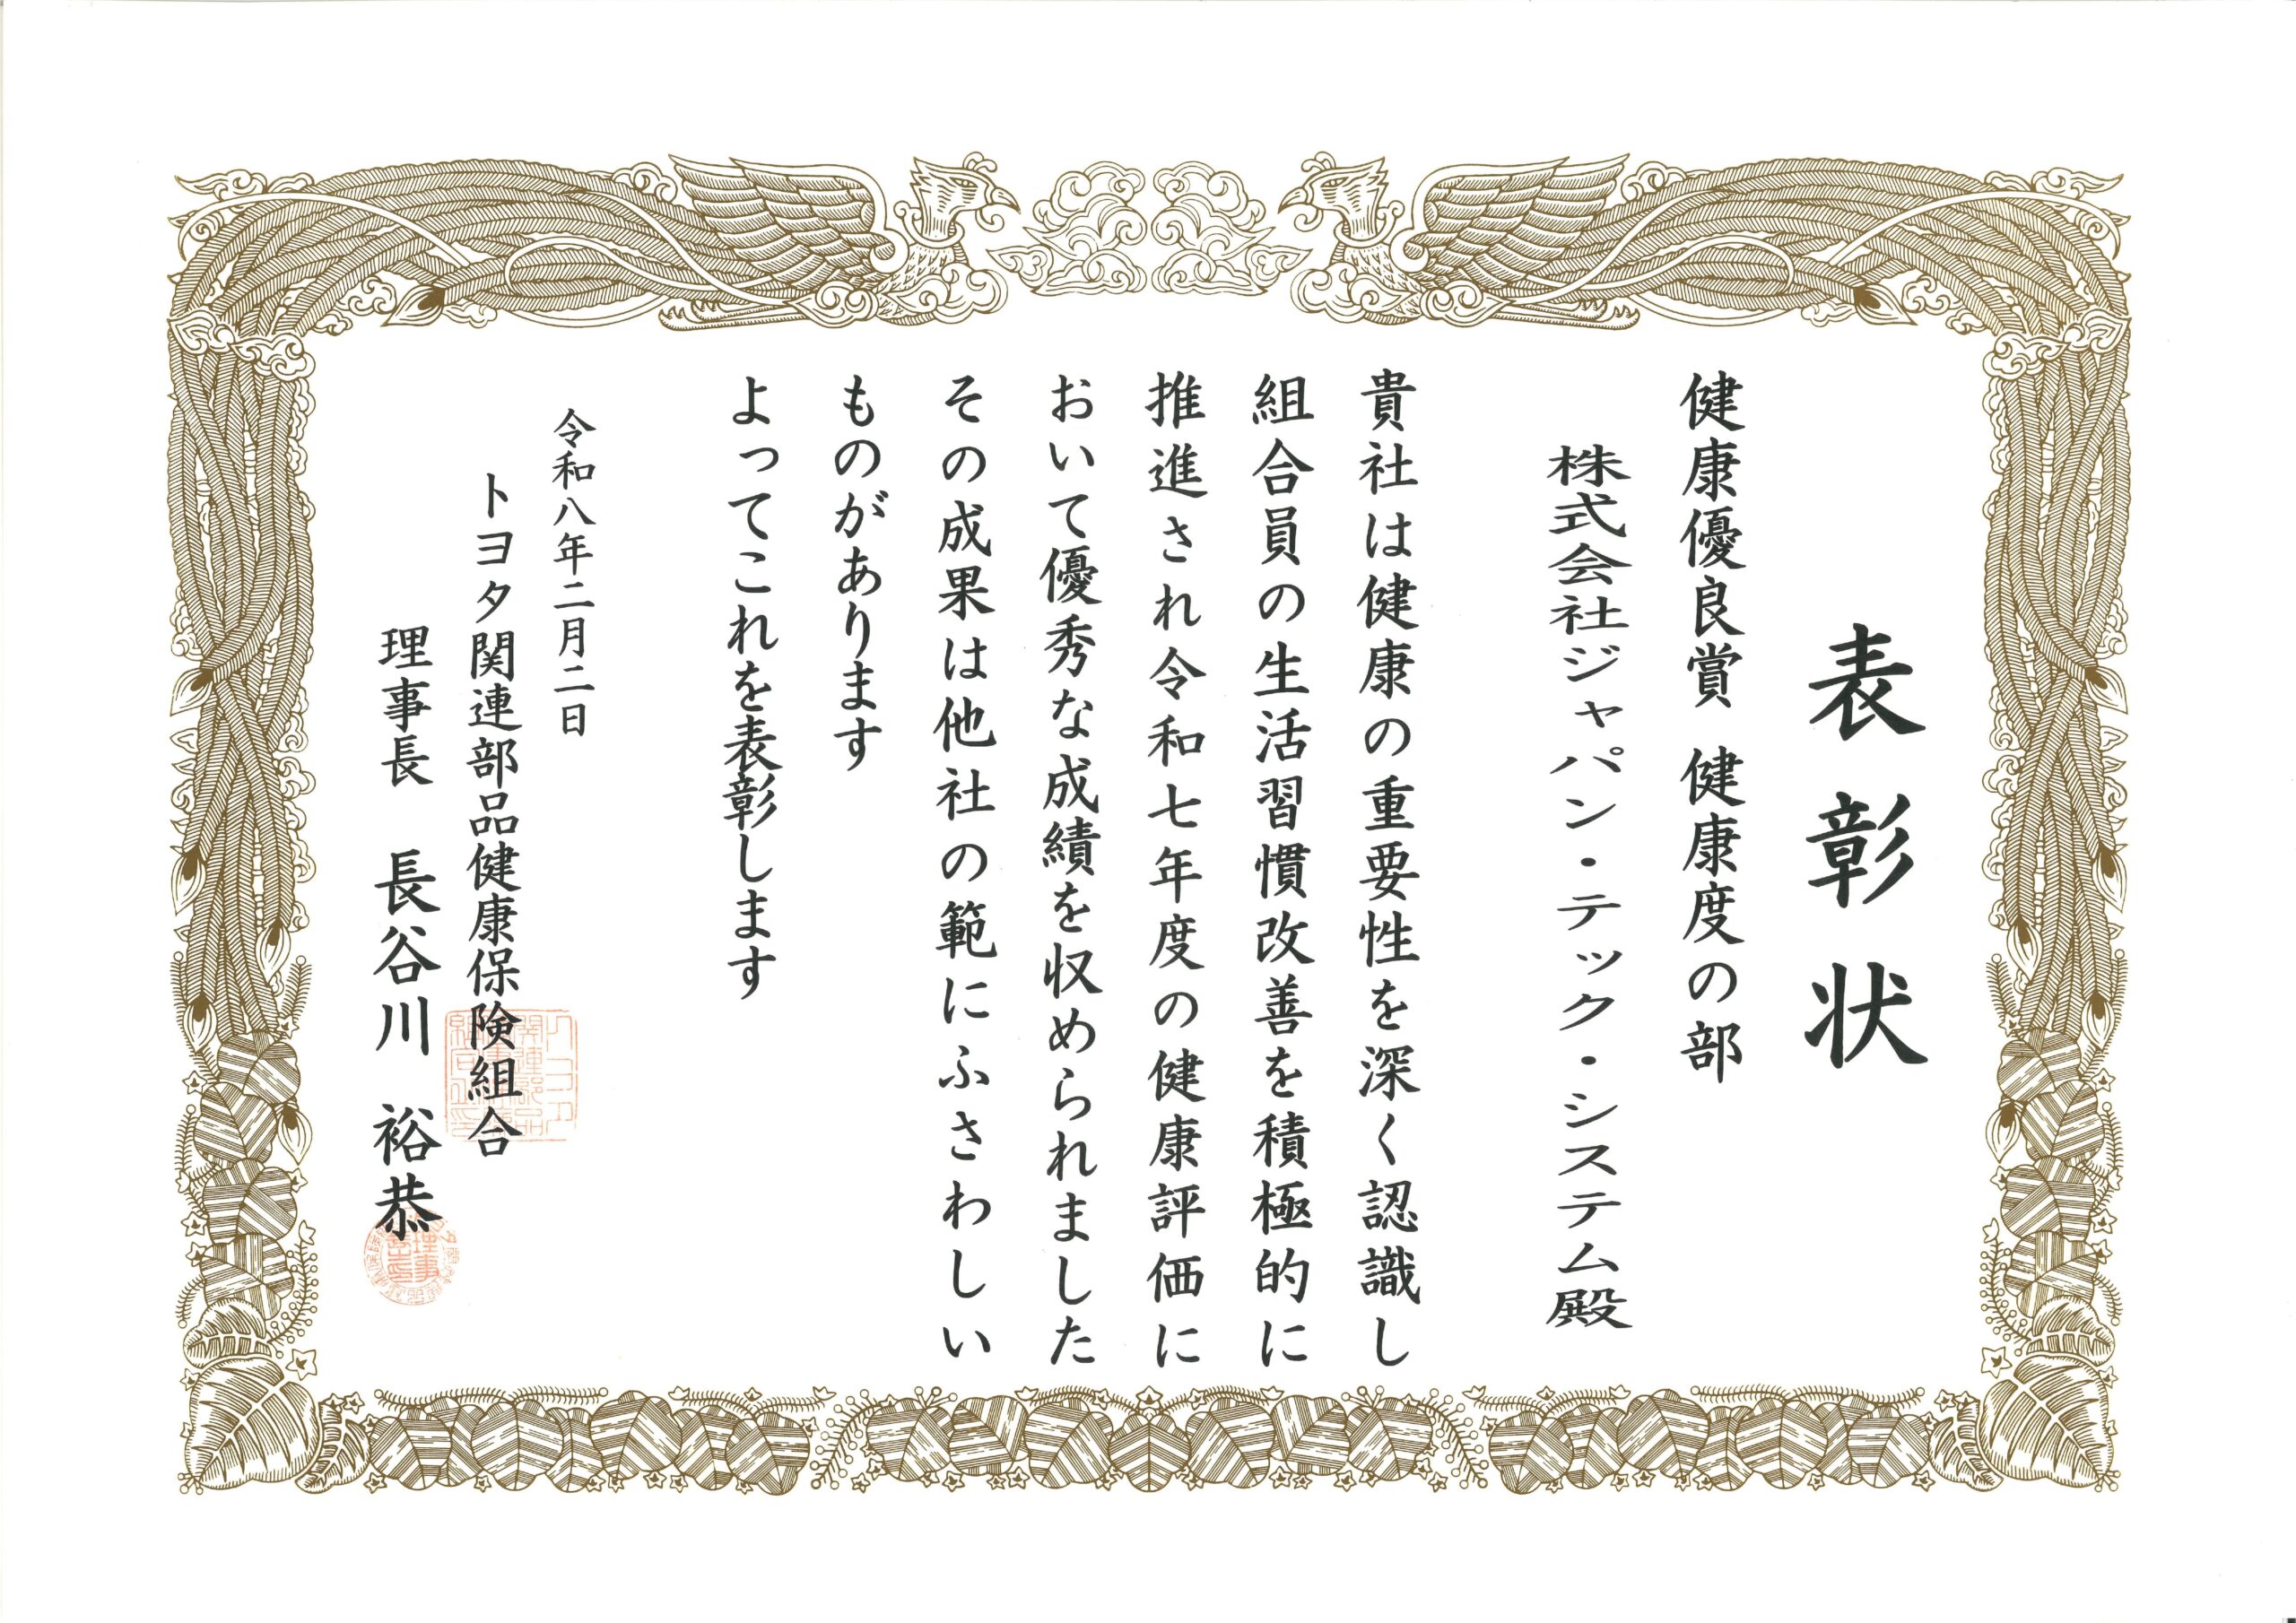 表彰状
健康優良賞 健康度の部
株式会社ジャパン・テック・システム殿
貴社は健康の重要性を深く認識し
組合員の生活習慣改善を積極的に
推進され令和七年度の健康評価に
おいて優秀な成績を収められました
その成果は他社の範にふさわしい
ものがあります
よってこれを表彰します
令和八年二月二日
トヨタ関連部品健康保険組合
理事長 長谷川 裕恭